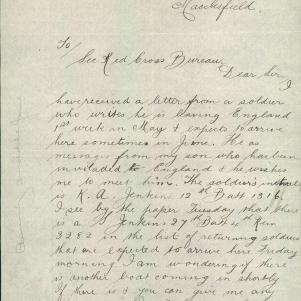 Macclesfield.
To
Sec Red Cross Bureau,
Dear Sir, I
have received a letter from a soldier
who writes he is leaving England
1st week in May & expects to arrive
here sometimes in June. He as
messages from my son who has been
invalided to England & he wishes
me to meet him. The soldiers initials
is R. A. Jenkins 12th Batt 1316.
I see by the paper Tuesday that there
is a Jenkins 27th Batt 4 Rein
3282 in the list of returning soldiers
that are expected to arrive here Friday
morning. I am wondering if there
is another boat coming in shortly
If there is & you can give me any